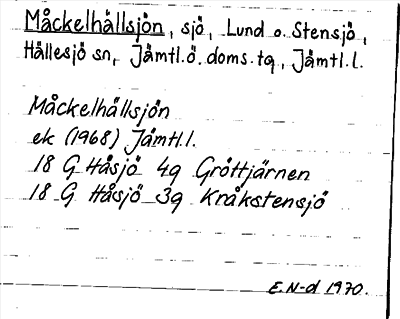 Måckelhållsjön, sjö, Lund o. Stensjö,
Hållesjö sn, Jämtl.ö. doms.tg, Jämtl.l.
Måckelhållsjön
ek (1968) Jämtl.l.
18 G Håsjö 4g Gröttjärnen
18 G Håsjö 3g Kråkstensjö
E.N-d 1970.